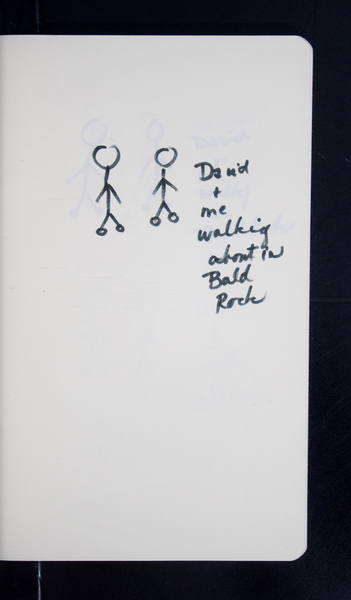 David
+
me
walking
about in
Bald
Rock